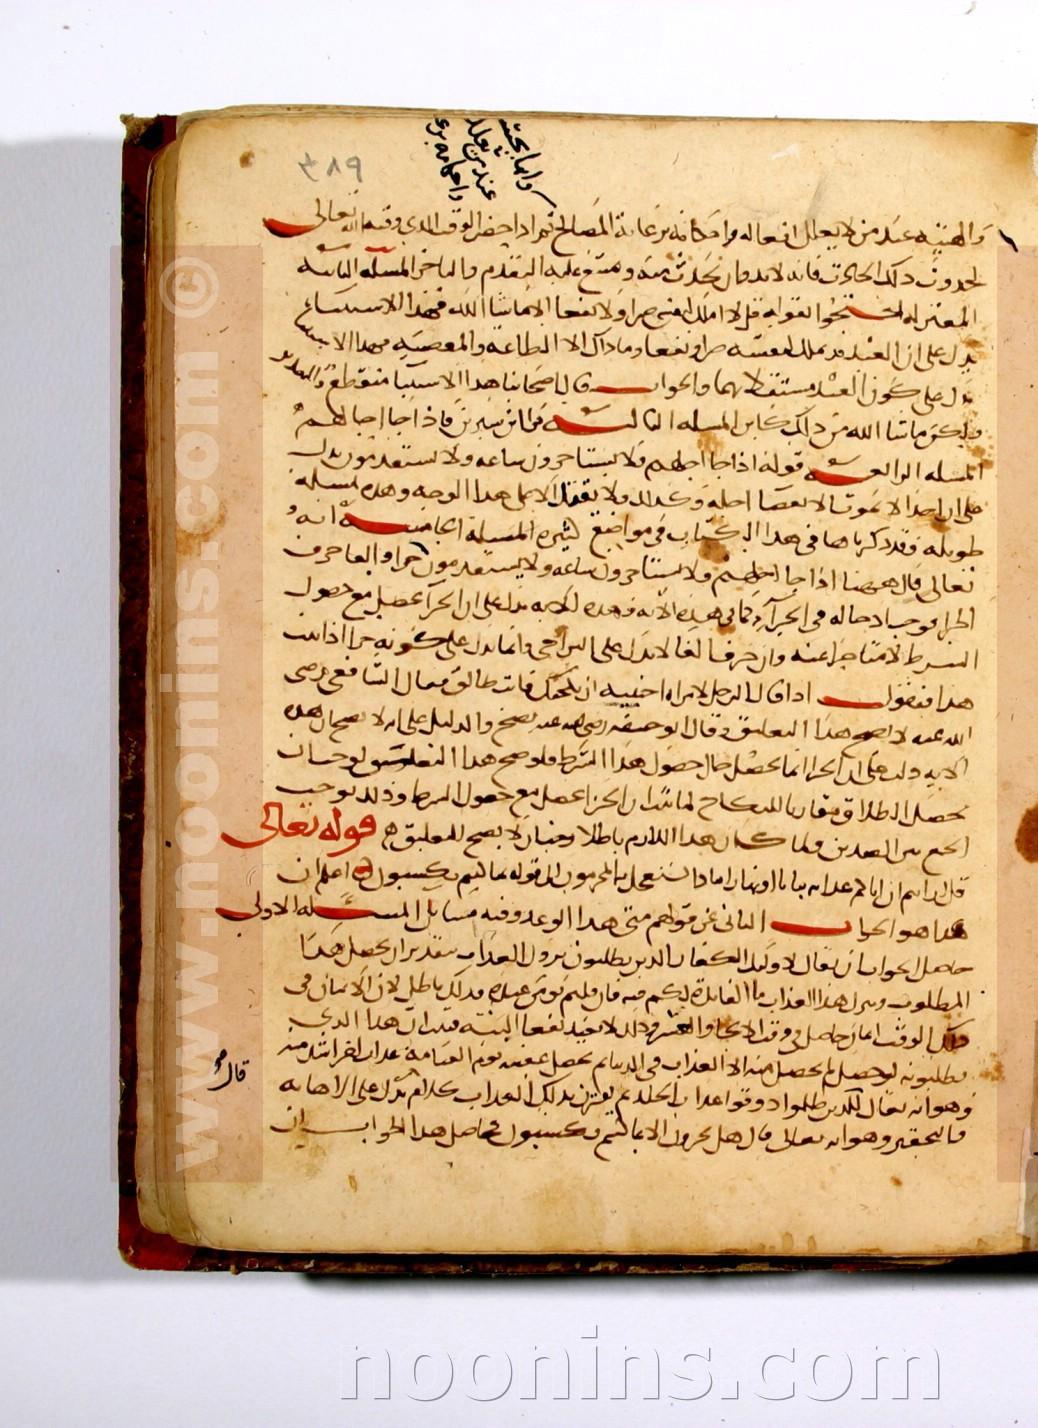 والهيه عند من لا يعلل افعاله واحكامه برعاية المصالح ثم اذا حضر الوقت الذي وقته الله تعالى
لحدوث ذلك الحادث فانه لا بد وان يحدث فيه ويمتنع عليه التقدم والتاخر المسله الثانيه
المعتزله احتجوا بقوله قل لا املك لنفسي ضرا ولا نفعا الا ما شا الله فهذا الاستثناء
يدل على ان العبد قد يملك لنفسه ضرا ونفعا وما ذاك الا الطاعة والمعصيه فهذا الاستثنا
يدل على كون العبد مستقلا بهما والجواب قال اصحابنا هذا الاستثنا منقطع والتقدير
ولكن ما شا الله من ذلك كاين المسله الثالثه قرا ابن سيرين فاذا جا اجالهم
المسله الرابعه قوله اذا جا اجلهم فلا يستاخرون ساعه ولا يستقدمون يدل
على ان احدا لا يموت الا بانقضا اجله وكذلك لا يقتل الا على هذا الوجه وهذه مسله
طويله وقد ذكرناها في هذا الكتاب في مواضع كثيره المسله الخامسه انه
تعالى قال ههنا اذا جا اجلهم فلا يستاخرون ساعه ولا يستقدمون
الجزا يوجب ادخاله في الجزا كما في هذه الايه فهذه الايه تدل على ان الجزا يحصل مع حصول
الشرط لا متاخرا عنه وان حرف الفا لا يدل على التراخي وانما يدل على كونه جزا اذا ثبت
هذا فنقول اذا قال الرجل لامراه اجنبيه ان نكحتك فانت طالق فقال الشافعي رضي
الله عنه لا يصح هذا التعليق وقال ابو حنيفه رضي الله عنه يصح والدليل على انه لا يصح ان هذه
الايه دلت على ان الجزا انما يحصل حال حصول هذا الشرط فلو صح هذا التعليق لوجب ان
يحصل الطلاق مقارنا للنكاح لما ثبت ان الجزا يحصل مع حصول الشرط وذلك يوجب
الجمع بين الضدين ولما كان هذا اللازم باطلا وجب ان لا يصح التعليق قوله تعالى
قل ارايتم ان اتاكم عذابه بياتا او نهارا ماذا يستعجل منه المجرمون الى قوله بما كنتم تكسبون اعلم ان
هذا هو الجواب الثاني عن قولهم متى هذا الوعد وفيه مسايل المسله الاولى
حاصل الجواب ان يقال لاوليك الكفار الذين يطلبون نزول العذاب بتقدير ان يحصل هذا
المطلوب وينزل هذا العذاب ما الفايدة لكم فيه فان قلتم نومن عنده فذلك باطل لان الايمان في
ذلك الوقت ايمان حاصل في وقت الالجا والقسر وذلك لا يفيد نفعا البته فثبت ان هذا الذي
يطلبونه لو حصل لم يحصل منه الا العذاب في الدنيا ثم يحصل عقيبه يوم القيامة عذاب اخر اشد منه
وهو انه يقال للذين ظلموا ذوقوا عذاب الخلد ثم يقترن بذلك العذاب كلام يدل على الاهانه
والتحقير وهو انه تعالى قال هل تجزون الا بما كنتم تكسبون فحاصل هذا الجواب ان
قال
www.noonins.com ©
noonins.com